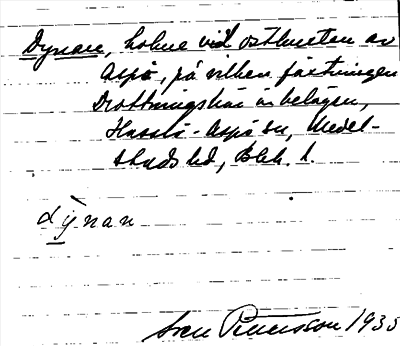 Dynan, holme vid ostkusten av
Aspö, på vilken fästningen
Drottningskär är belägen,
Hasslö-Aspö sn, Medel-
stads hd, Blek. l.
dỳnan
Sven Petersson 1935